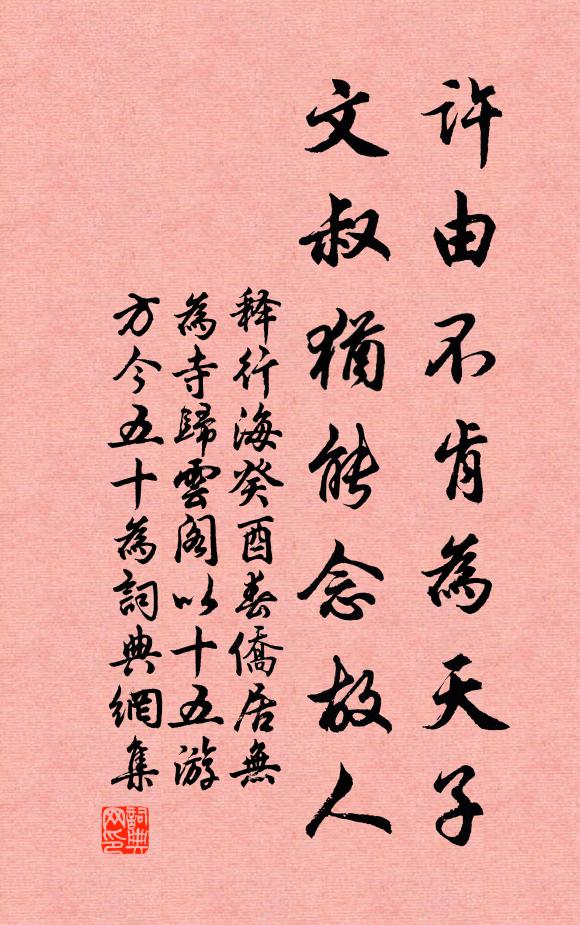 許由不肯為天子
文叔猶能念故人
釋行海癸酉春僑居無
為寺歸雲閣以十五游
方今五十為詞典網集
詞典
网印